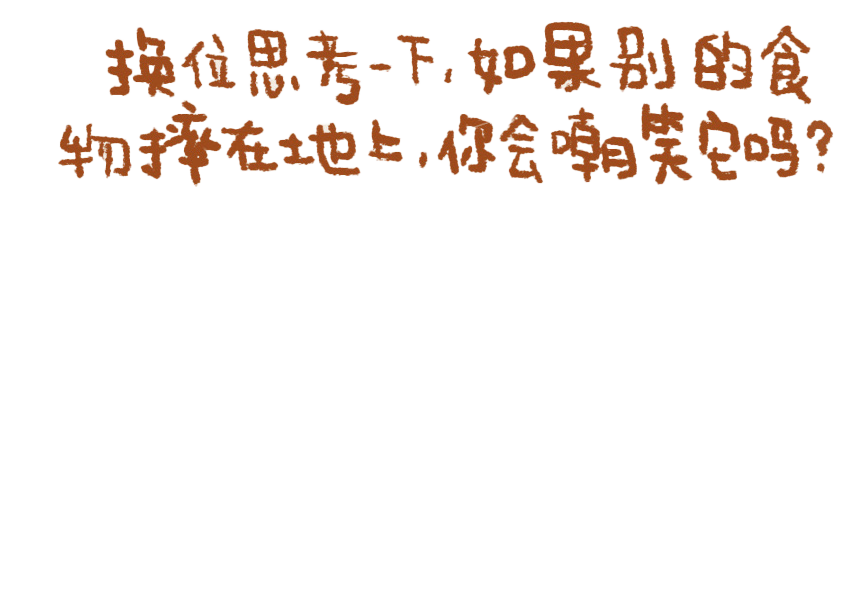 换位思考一下,如果别的食
物摔在地上,你会嘲笑它吗?